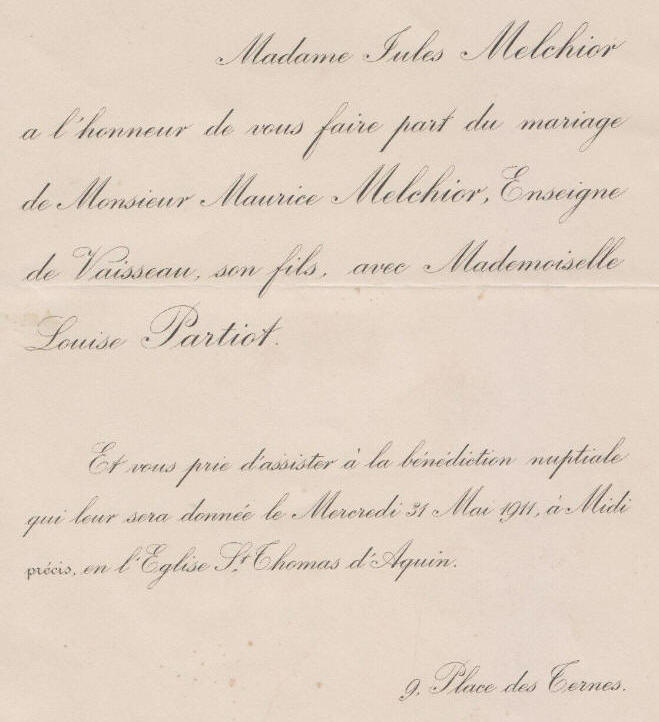 Madame Jules Melchior
a l'honneur de vous faire part du mariage
de Monsieur Maurice Melchior, Enseigne
de Vaisseau, son fils, avec Mademoiselle
Louise Partiot.
Et vous prie d'assister à la bénédiction nuptiale
qui leur sera donnée le Mercredi 31 Mai 1911, à Midi
précis, en l'Eglise St. Thomas d'Aquin.
9, Place des Ternes.